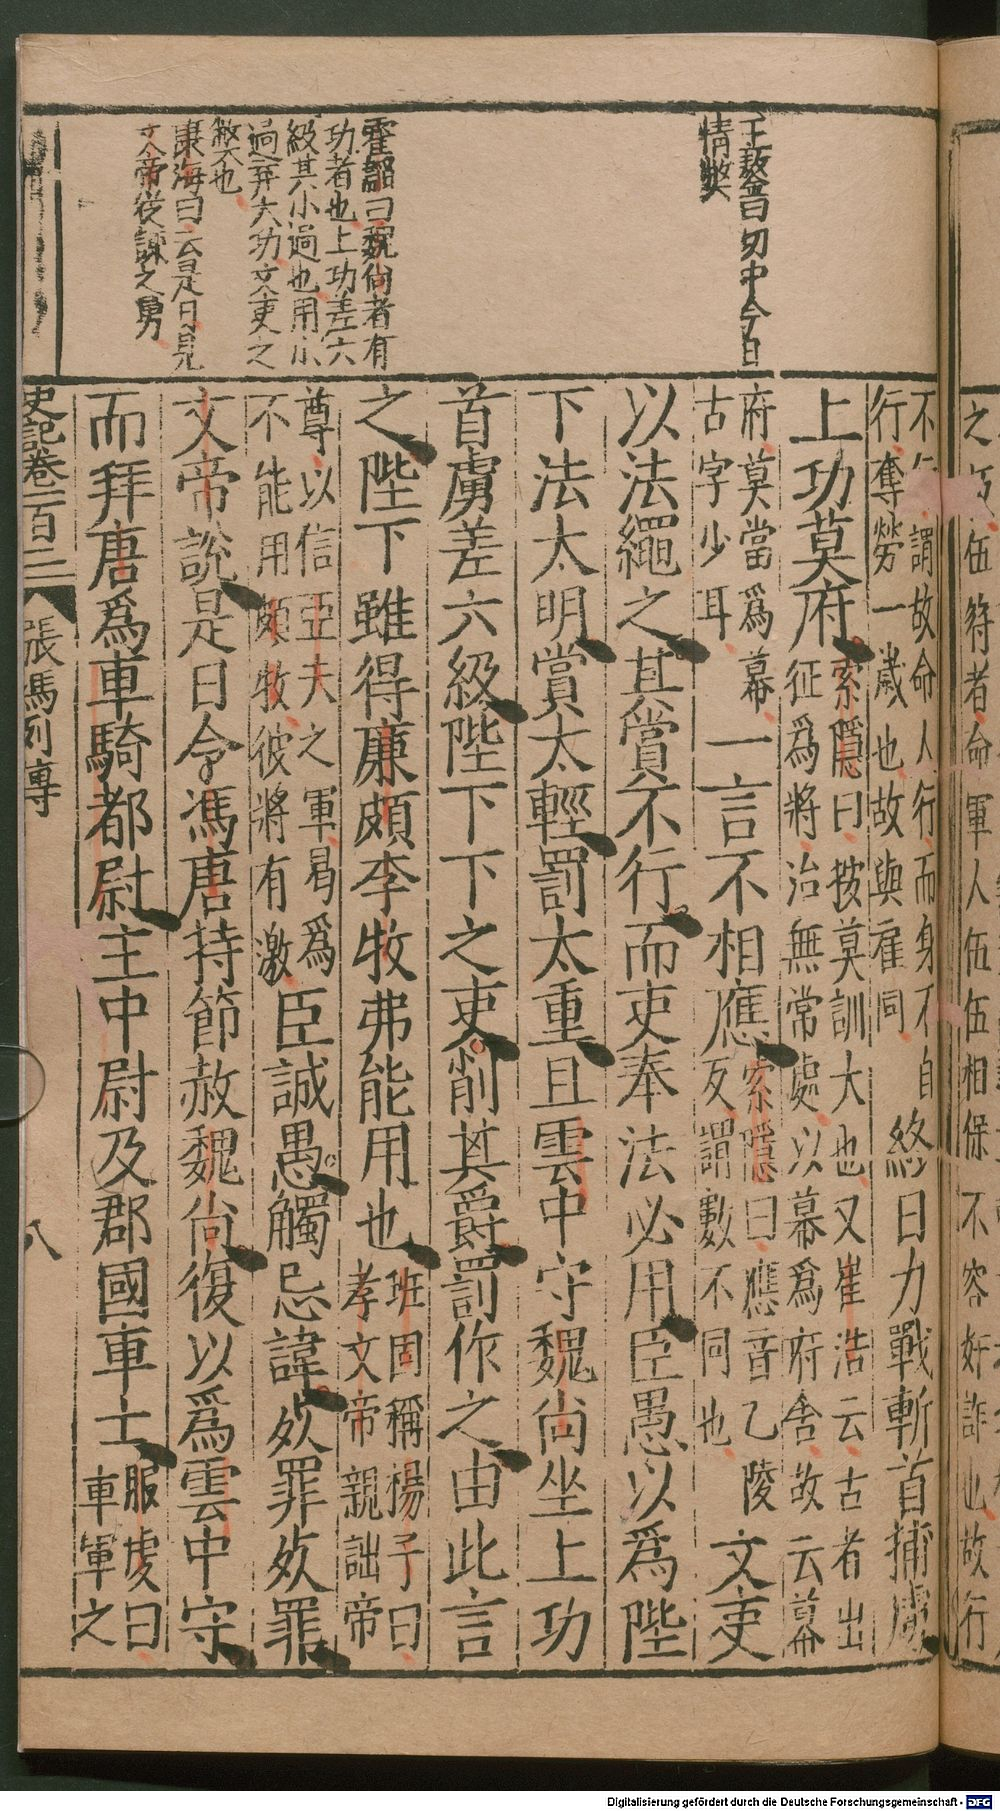 之
伍符者命軍人伍伍相保不容奸詐也故行
不行謂故命人行而身不自
行奪勞一歲也故與雇同
終日力戰斬首捕虜
上功莫府
索隱曰按莫訓大也又崔浩云古者出
征爲將治無常處以幕爲府舍故云幕
府莫當爲幕
古字少耳
一言不相應
索隱曰應音乙陵
反謂數不同也
文吏
以法繩之其賞不行而吏奉法必用臣愚以爲陛
下法太明賞太輕罰太重且雲中守魏尙坐上功
首虜差六級陛下下之吏削其爵罰作之由此言
之陛下雖得廉頗李牧弗能用也
班固稱楊子曰
孝文帝親詘帝
尊以信亞夫之軍曷爲
不能用頗牧彼將有激
臣誠愚觸忌諱死罪死罪
文帝說是日令馮唐持節赦魏尙復以爲雲中守
而拜唐爲車騎都尉主中尉及郡國車士
服虔曰
車軍之
史記卷一百二
張馮列傳
八
王鏊曰切中今日
情弊
霍韜曰魏尙者有
功者也上功差六
級其小過也用小
過弃大功文吏之
弊也
東海曰云是日見
文帝從諫之勇
Digitalisierung gefördert durch die Deutsche Forschungsgemeinschaft - DFG